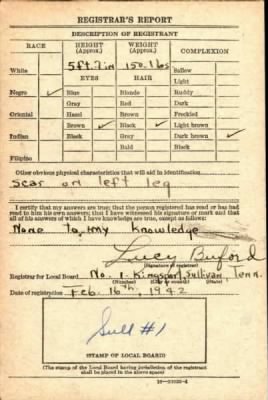 REGISTRAR'S REPORT
DESCRIPTION OF REGISTRANT
RACE HEIGHT (Approx.) WEIGHT (Approx.) COMPLEXION
White 5ft.7in 150.lbs Sallow
EYES HAIR Light
Negro ✓ Blue Blonde Ruddy
Gray Red Dark
Oriental Hazel Brown Freckled
Brown ✓ Black ✓ Light brown ✓
Indian Black Gray Dark brown
Bald Black
Filipino
Other obvious physical characteristics that will aid in identification
Scar on left leg
I certify that my answers are true; that the person registered has read or has had
read to him his own answers; that I have witnessed his signature or mark and that
all of his answers of which I have knowledge are true, except as follows:
None to my Knowledge
Lucy Buford
(Signature of registrar)
Registrar for Local Board No. 1- Kingsport, Sullivan, Tenn.
(Number) (City or county) (State)
Date of registration Feb. 16th, 1942
Sull #1
(STAMP OF LOCAL BOARD)
(The stamp of the Local Board having jurisdiction of the registrant
shall be placed in the above space.)